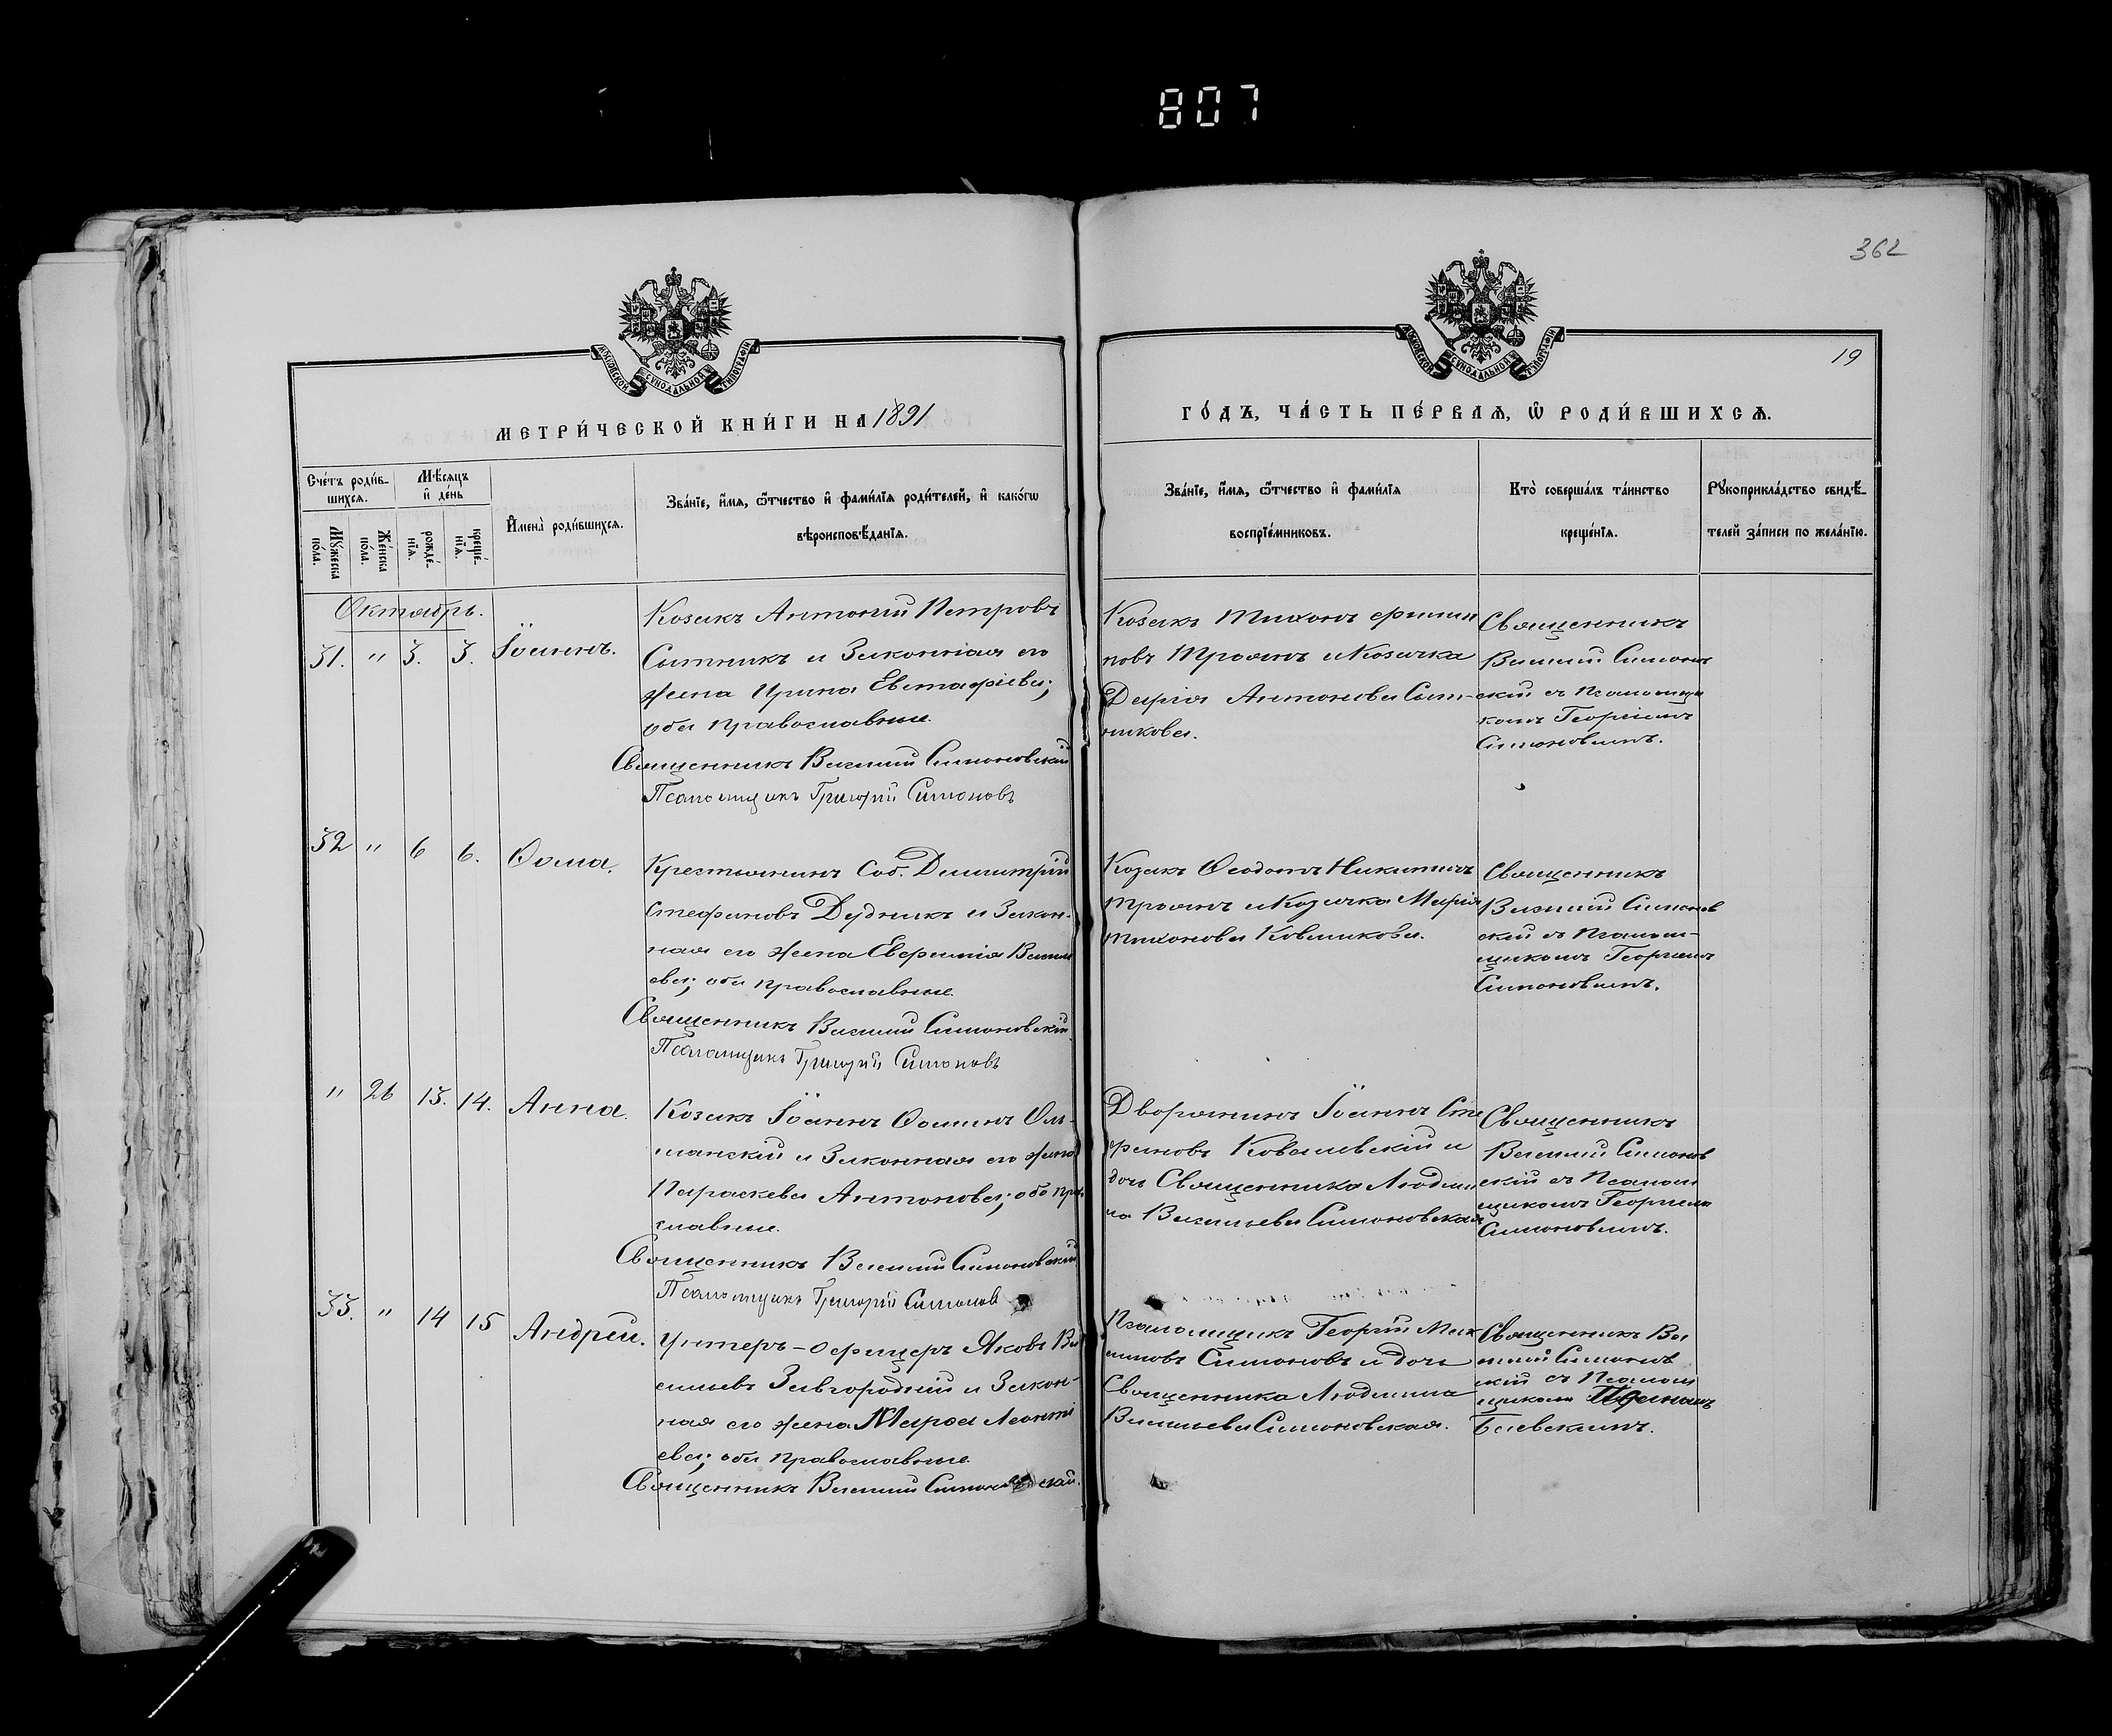 807
362
19
МОСКОВСКОЙ СУНОДАЛЬНОЙ ТИПОГРАФІИ
МОСКОВСКОЙ СУНОДАЛЬНОЙ ТИПОГРАФІИ
МЕТРИ́ЧЕСКОЙ КНИ́ГИ НА 1891
ГО́ДЪ, ЧА́СТЬ ПЕ́РВАѦ, Ѡ҆ РОДИ́ВШИХСѦ.
Сче́тъ роди́в-
шихсѧ.
Мѣ́сѧцъ
и҆ де́нь
Мꙋ́жеска
по́ла.
Же́нска
по́ла.
рожде́-
нїѧ.
креще́-
нїѧ.
И҆мена̀ роди́вшихсѧ.
Зва́нїе, и҆́мѧ, ѻ҆́тчество и҆ фами́лїѧ роди́телей, и҆ како́гѡ
вѣроисповѣ́данїѧ.
Зва́нїе, и҆́мѧ, ѻ҆́тчество и҆ фами́лїѧ
воспрїе́мниковъ.
Кто̀ соверша́лъ та́инство
креще́нїѧ.
Рꙋкоприкла́дство свидѣ́-
телей за́писи по жела́нїю.
Октябрь.
31. " 3. 3. Іоаннъ.
Козакъ Антоній Петровъ
Сытникъ и Законная его
жена Ирина Евстафіева;
оба православные.
Священникъ Василій Симоновскій
Псаломщикъ Григорій Симоновъ
Козакъ Тихонъ Филип
повъ Троянъ и Козачка
Дарія Антонова Сыт-
никова.
Священникъ
Василій Симонов
скій съ Псаломщи
комъ Георгіемъ
Симоновымъ.
32 " 6 6. Ѳома.
Крестьянинъ Соб. Димитрій
Стефановъ Дудникъ и Закон-
ная его жена Евфимія Василі
ева; оба православные.
Священникъ Василій Симоновскій
Псаломщикъ Григорій Симоновъ
Козакъ Ѳеодотъ Никитинъ
Троянъ и Козачка Марія
Тихонова Коваликова.
Священникъ
Василій Симонов
скій съ Псалом-
щикомъ Георгіемъ
Симоновымъ.
" 26 13. 14. Анна.
Козакъ Іоаннъ Ѳоминъ Оль-
шанскій и Законная его жена
Параскева Антонова; оба пра
славные.
Священникъ Василій Симоновскій
Псаломщикъ Григорій Симонов
Дворянинъ Іоаннъ Сте
фановъ Ковалевскій и
дочь Священника Людми
ла Васильева Симоновская
Священникъ
Василій Симонов
скій съ Псалом
щикомъ Георгіемъ
Симоновымъ.
33. " 14 15 Андрей.
Унтеръ-офицеръ Яковъ Ва
сильевъ Завгородній и Закон-
ная его жена Марѳа Леонті
ева; оба православные.
Священникъ Василій Симоновскій.
Псаломщикъ Георгій Мак
симовъ Симоновъ и дочь
Священника Людмила
Васильева Симоновская.
Священникъ Ва
силій Симонов
скій съ Псалом
щикомъ
Баевскимъ.